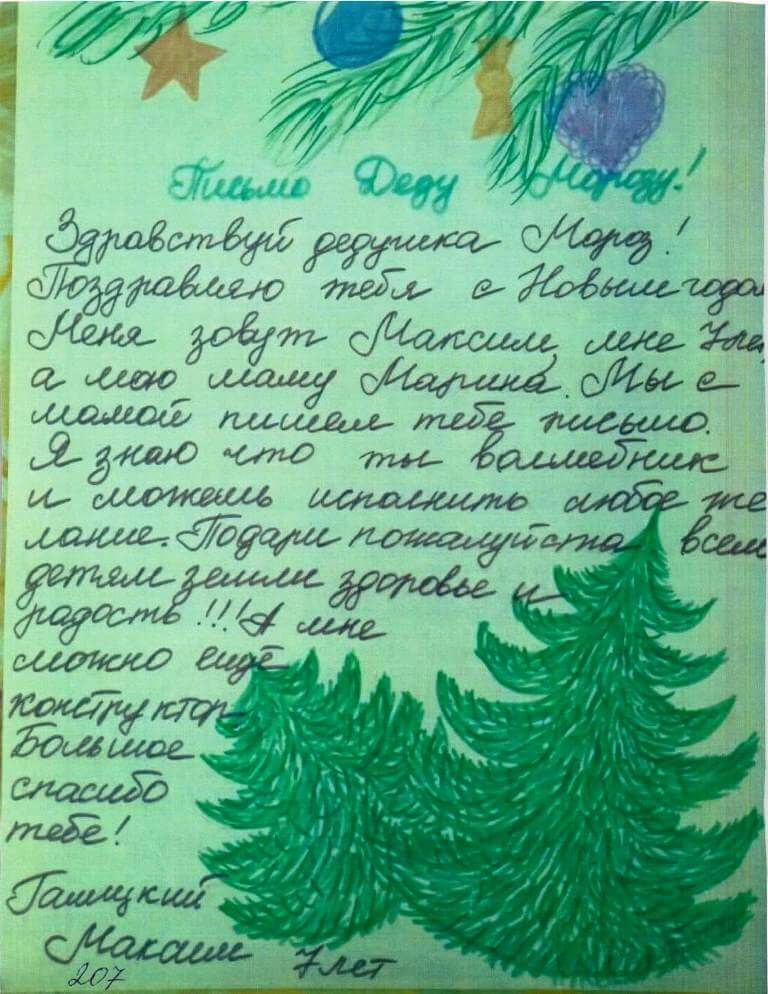 Письмо Деду Морозу!
Здравствуй дедушка Мороз!
Поздравляю тебя с Новым годом
Меня зовут Максим, мне 7 лет,
а мою маму Марина. Мы с
мамой пишем тебе письмо.
Я знаю что ты волшебник
и можешь исполнить любое же
лание. Подари пожалуйста всем
детям земли здоровье и
радость!!! А мне
можно ещё
конструктор
Большое
спасибо
тебе!
Максим 7 лет
207